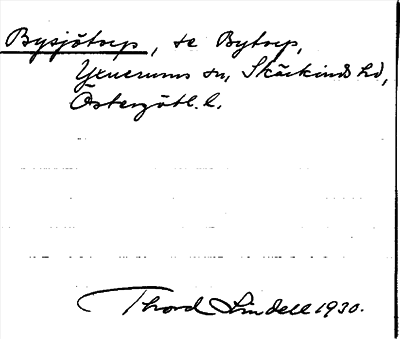 Bysjötorp, se Bytorp,
Yxnerums sn, Skärkinds hd,
Östergötl. l.
Thord Lindell 1930.